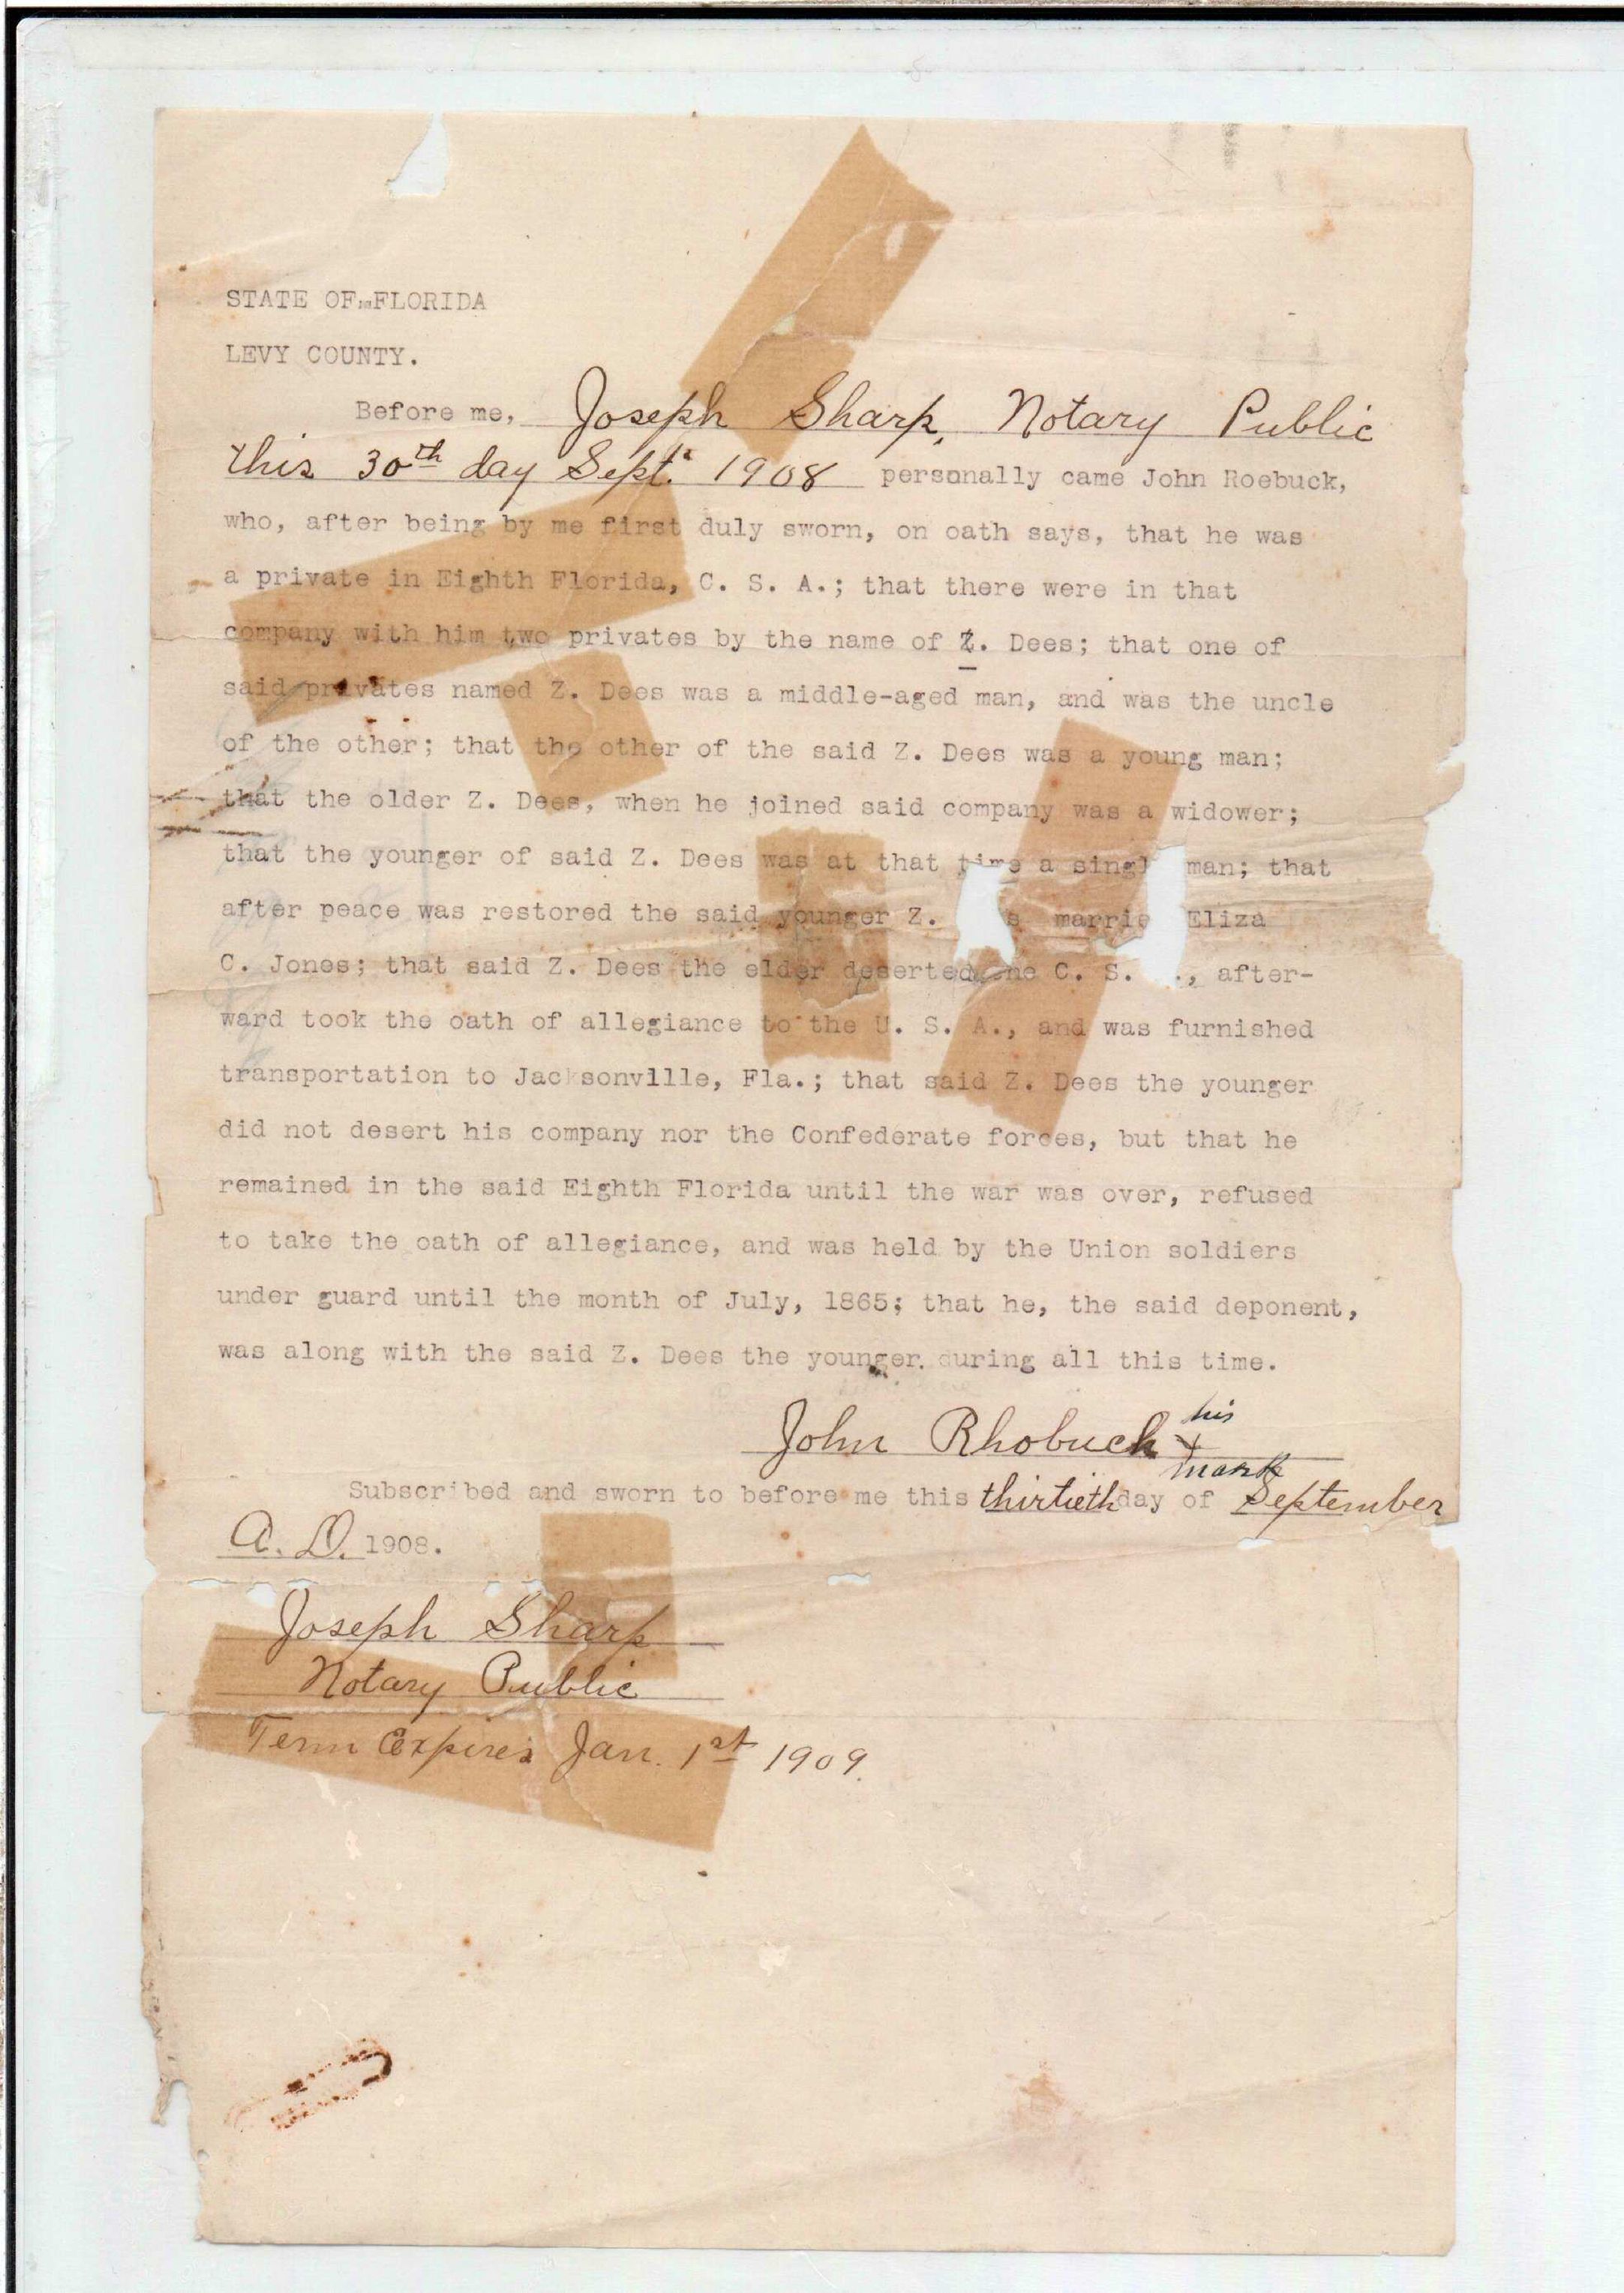 STATE OF FLORIDA
LEVY COUNTY.
Before me, Joseph Sharp, Notary Public
this 30th day Sept. 1908 personally came John Roebuck,
who, after being by me first duly sworn, on oath says, that he was
a private in Eighth Florida, C. S. A.; that there were in that
company with him two privates by the name of Z. Dees; that one of
said privates named Z. Dees was a middle-aged man, and was the uncle
of the other; that the other of the said Z. Dees was a young man;
that the older Z. Dees, when he joined said company was a widower;
that the younger of said Z. Dees was at that time a singl man; that
after peace was restored the said younger Z. s marrie Eliza
C. Jones; that said Z. Dees the elder deserted the C. S. ., after-
ward took the oath of allegiance to the U. S. A., and was furnished
transportation to Jacksonvllle, Fla.; that said Z. Dees the younger
did not desert his company nor the Confederate forces, but that he
remained in the said Eighth Florida until the war was over, refused
to take the oath of allegiance, and was held by the Union soldiers
under guard until the month of July, 1865; that he, the said deponent,
was along with the said Z. Dees the younger during all this time.
his
John Rhobuck x
mark
Subscribed and sworn to before me this thirtieth day of September
A. D. 1908.
Joseph Sharp
Notary Public
Term Expires Jan. 1st 1909.